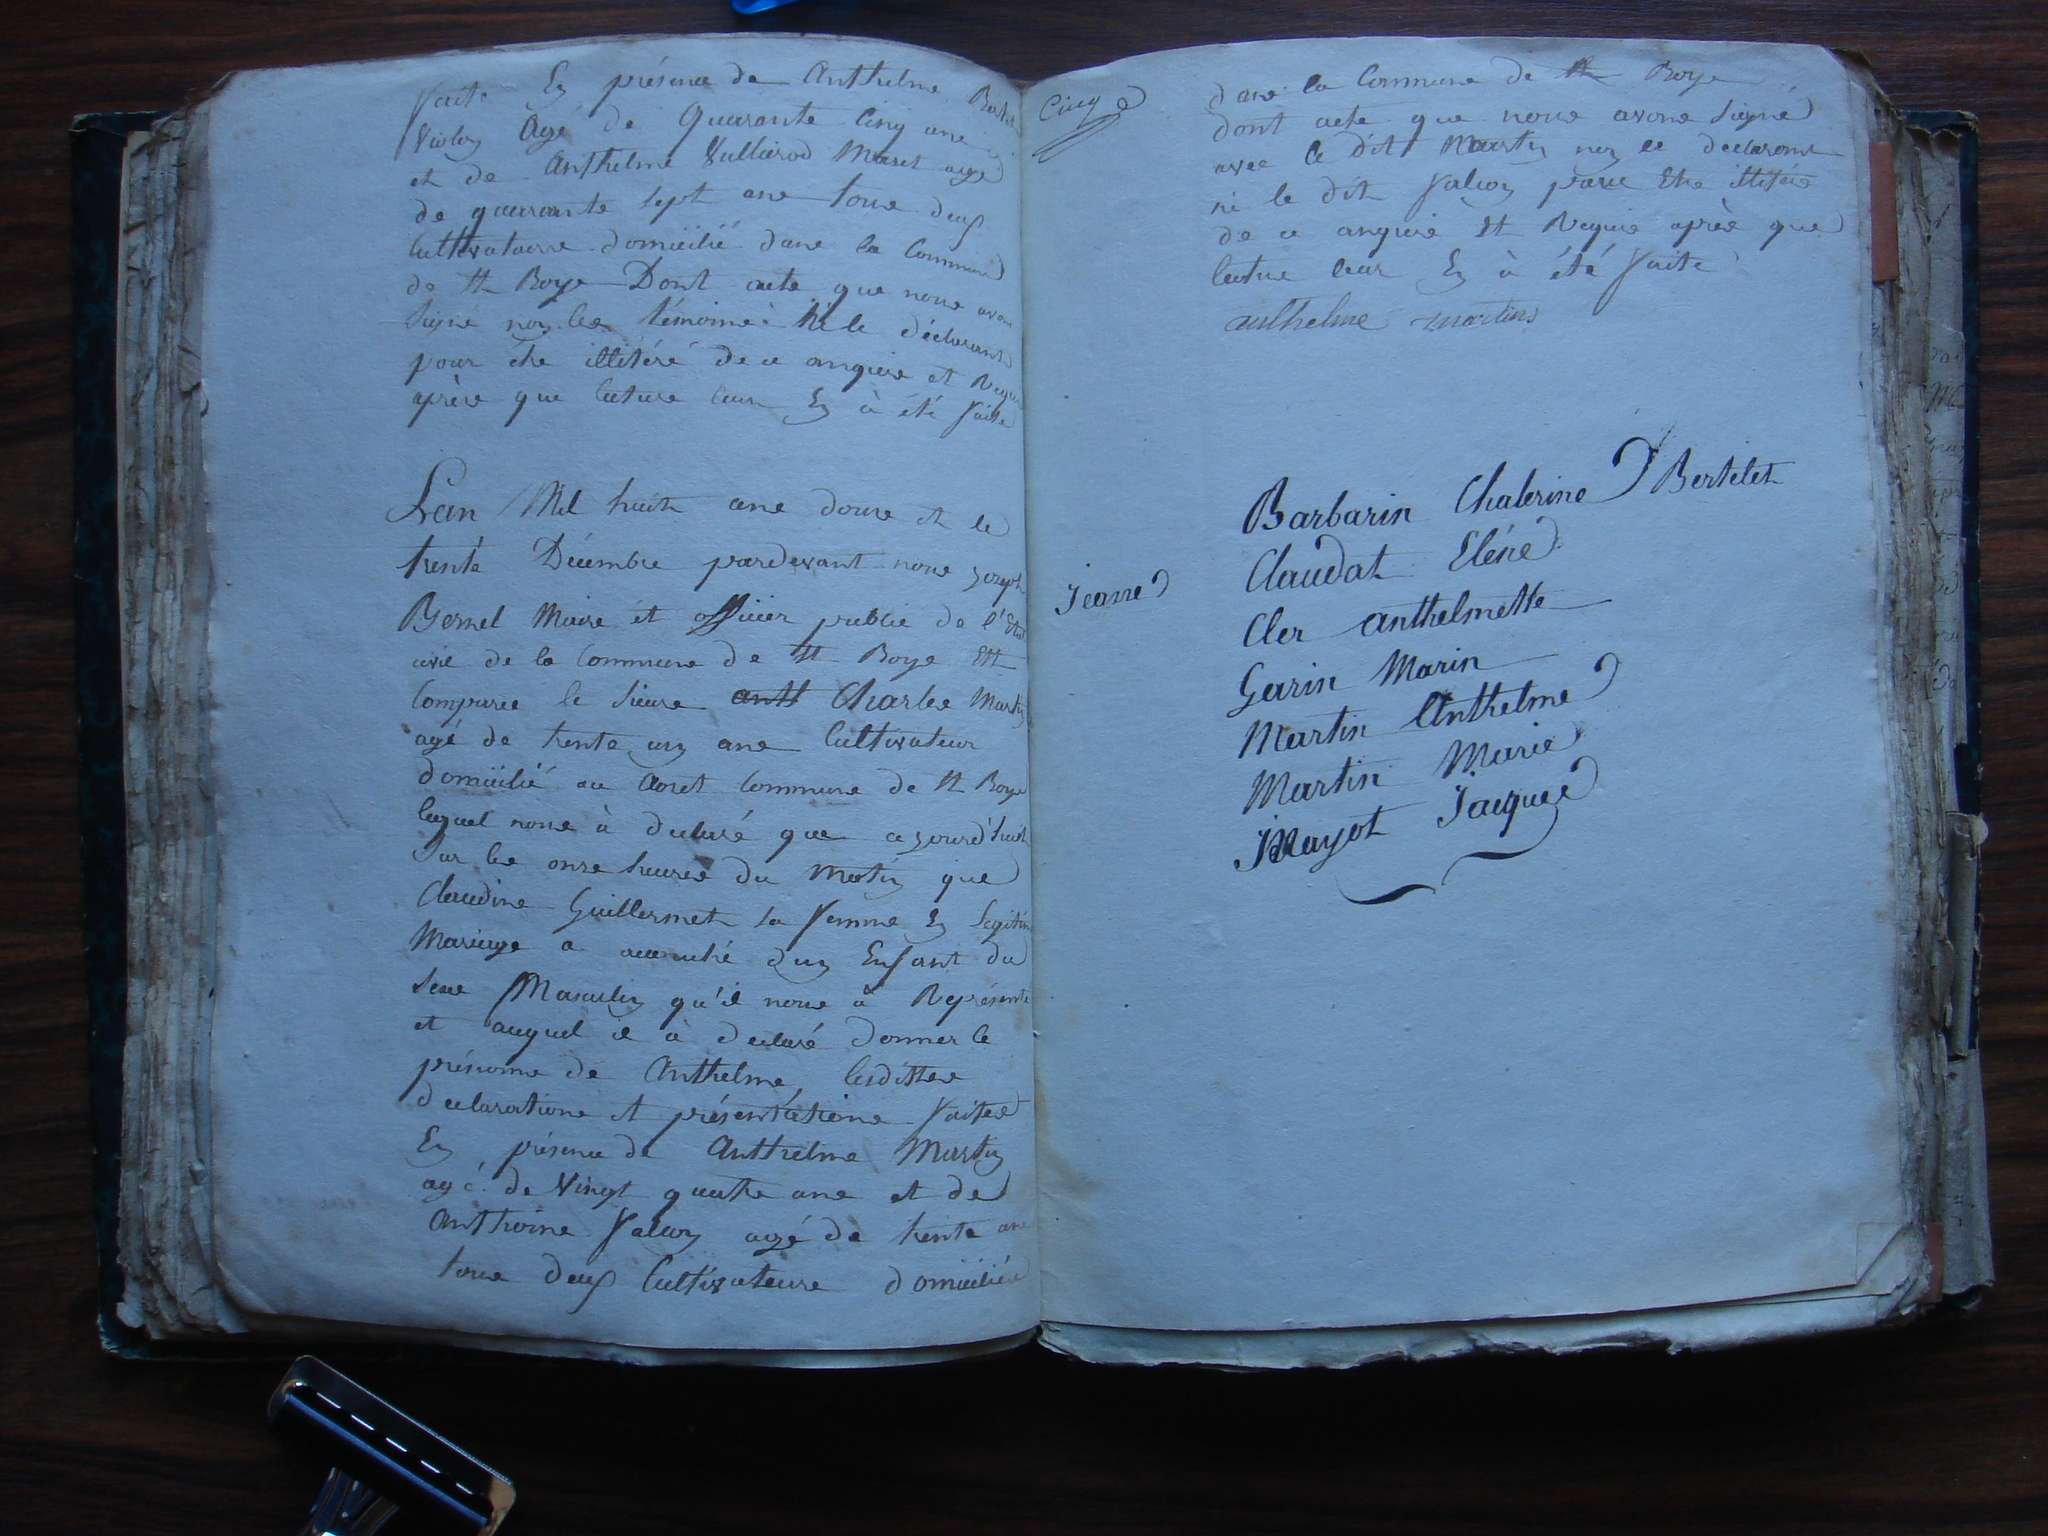 faite En présence de Anthelme
Violon Agé de Quarante Cinq ans
et de Anthelme Vullierod Maret agé
de quarante sept ans tous deux
Cultivataurs domicilié dans la Commune
de St Boys Dont acte que nous avons
Signé non les témoins ni le déclarant
pour être illitéré de ce anquis et Requis
après que lecture leur En à été faite
Lan Mil huit ans douze et le
trente Décembre pardevant nous Joseph
Bernel Maire et officier public de l'Etat
civil de la Commune de St Boys Est
Comparue le Sieurs anth Charles Martin
agé de trente un ans Cultivateur
domicilié au Coret Commune de St Boys
lequel nous à declaré que ajourd'huit
Sur les onze heures du Matin que
Claudine Guillermet sa femme En Legitime
Mariage a accouché d'un Enfant du
Sexe Masculin qu'il nous à Représenté
et auquel il à declaré donner le
prénoms de Anthelme, lesdittes
declarations et présentations faites
En présence de Anthelme Martin
agé de Vingt quatre ans et de
Anthoine falcon agé de trente ans
tous deux Cultivateurs domiciliés
Cinq
dans la Commune de St Boys
dont acte que nous avons signé
avec le dit Martin non le declarant
ni le dit falcon pour Etre illitéré
de ce anquis Et Requis après que
lecture leur En à été faite
anthelme martins
Barbarin Chaterine Bertelet
Claudat Eléne
Jeanne
Cler anthelmette
Garin Marin
Martin Anthelme
Martin Marie
Mayot Jacques